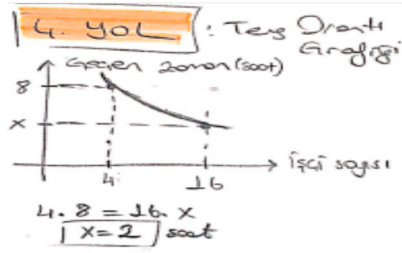 4. YOL : Ters Orantı
Grafiği
Geçen zaman (saat)
8
x
4
16
İşçi sayısı
4. 8 = 16. x
x = 2 saat